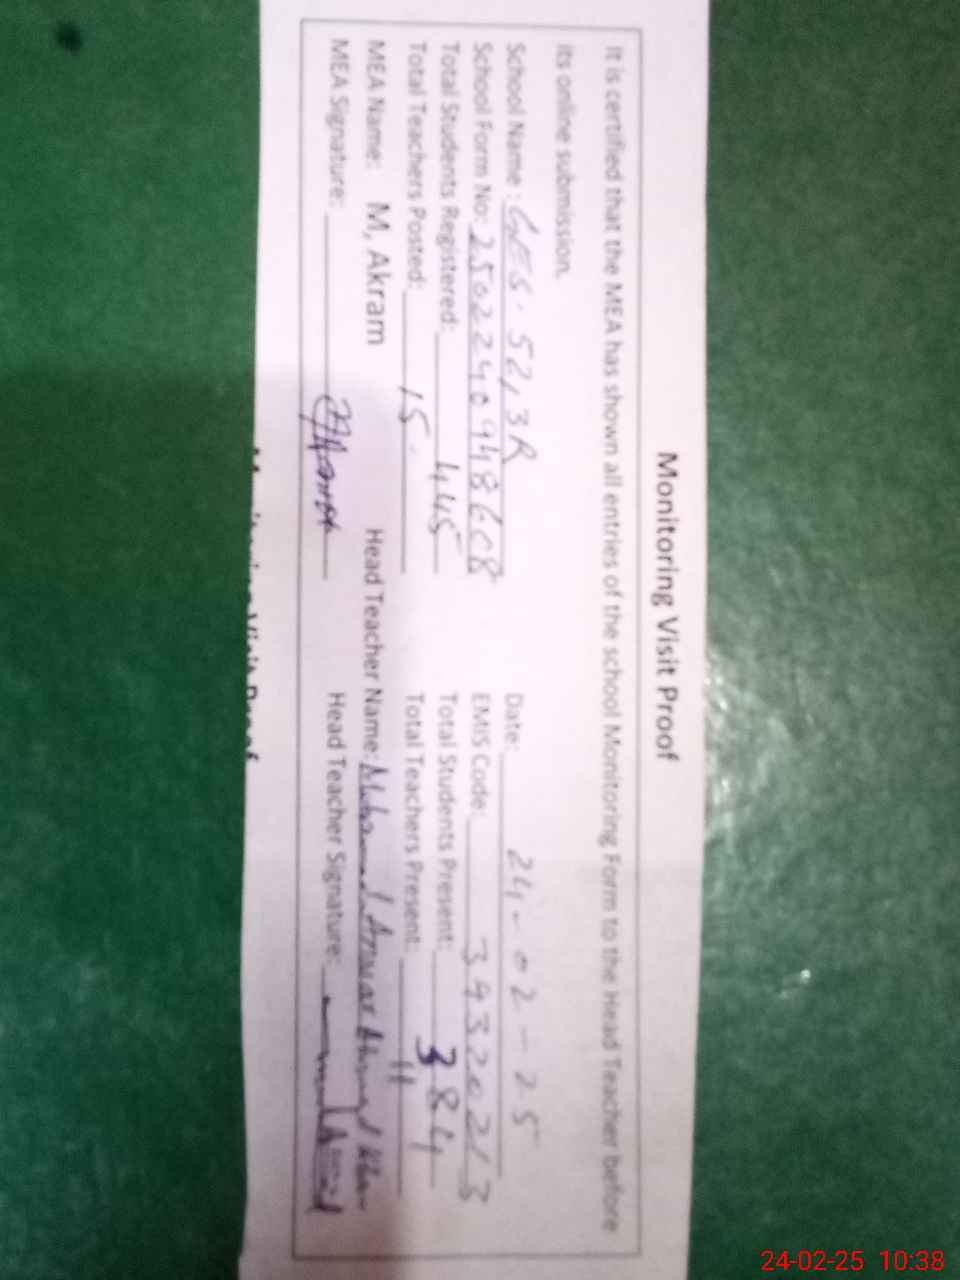 Monitoring Visit Proof
It is certified that the MEA has shown all entries of the school Monitoring Form to the Head Teacher before
its online submission.
School Name: GES. 52/3R Date: 24-02-25
School Form No: 2502240948608 EMIS Code: 39320213
Total Students Registered: 445 Total Students Present: 384
Total Teachers Posted: 15 Total Teachers Present: 11
MEA Name: M, Akram Head Teacher Name: Muhammad Anwar Ahmad Khan
MEA Signature: Head Teacher Signature:
Monitoring Visit Proof
24-02-25 10:38